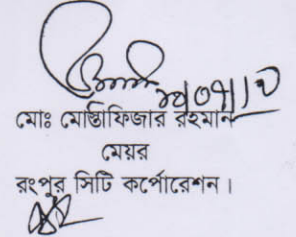 মোঃ মোস্তাফিজার রহমান
মেয়র
রংপুর সিটি কর্পোরেশন।